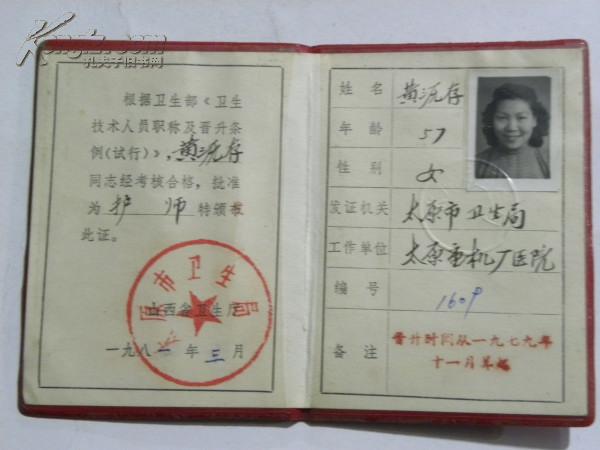 Kongfz.com
孔夫子旧书网
根据卫生部《卫生
技术人员职称及晋升条
例(试行)》，黄沅存
同志经考核合格，批准
为 护 师 特颁发
此证。
山西省卫生厅
一九八一 年 三 月
原市卫生局
姓 名 黄沅存
年 龄 57
性 别 女
发证机关 太原市卫生局
工作单位 太原重机厂医院
编 号 1609
备 注 晋升时间从一九七九年
十一月算起